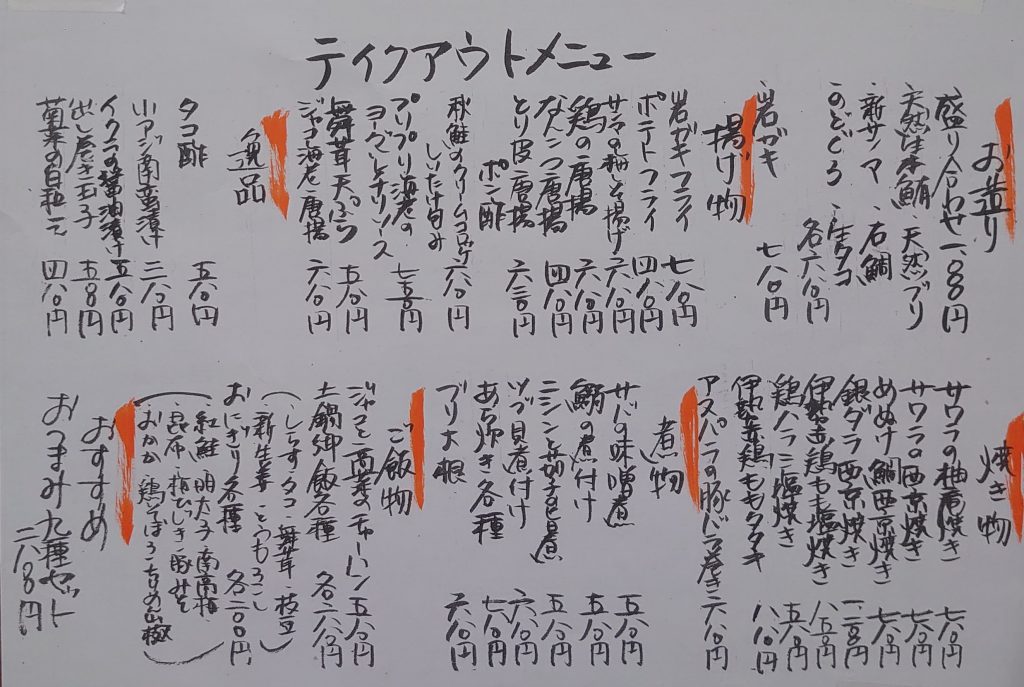 テイクアウトメニュー
お造り
盛り合わせ 一、八八〇円
天然生本鮪・天然ブリ
・新サンマ・石鯛
・のどぐろ・生タコ
各六八〇円
岩ガキ 七八〇円
揚げ物
岩ガキフライ 七八〇円
ポテトフライ 四八〇円
サンマの柚そ揚げ 六八〇円
鶏の唐揚 六八〇円
なんこつ唐揚 四八〇円
とり皮唐揚
ポン酢 六三〇円
秋鮭のクリームコロッケ
しいたけ包み 六八〇円
プリプリ海老の
ヨーグルトチリソース 七三〇円
舞茸天ぷら 五八〇円
ジャコ海老唐揚 六八〇円
逸品
タコ酢 五八〇円
小アジ南蛮漬け 三八〇円
イクラの醤油漬け 五八〇円
出し巻き玉子 五八〇円
菊菜の白和え 四八〇円
焼き物
サワラの柚庵焼き 七八〇円
サワラの西京焼き 七八〇円
めぬけ鯛西京焼き 七八〇円
銀ダラ西京焼き 一、二八〇円
伊勢赤鶏もも塩焼き 八五〇円
鶏ハラミ塩焼き 五八〇円
伊勢赤鶏ももタタキ 八八〇円
アスパラの豚バラ巻き 六八〇円
煮物
サバの味噌煮 五八〇円
鰯の煮付け 五八〇円
ニシンと茄子旨煮 五八〇円
ツブ貝煮付け 六八〇円
あら炊き各種 七八〇円
ブリ大根 六八〇円
ご飯物
ジャコと高菜のチャーハン 五八〇円
土鍋御飯各種 各六八〇円
(しらす タコ 舞茸・枝豆
新生姜 とうもろこし)
おにぎり各種 各二〇〇円
(紅鮭・明太子・南高梅
昆布・梅ひじき・豚みそ
おかか 鶏そぼろ・ちりめん山椒)
おすすめ
おつまみ九種セット
二八八〇円